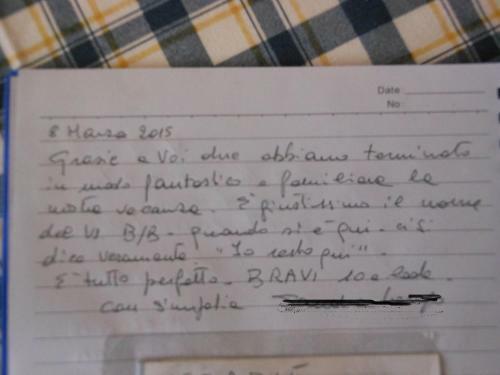 Date
No
8 Marzo 2015
Grazie a Voi due abbiamo terminato
in modo fantastico e familiare la
nostra vacanza. È giustissimo il nome
del Vs B/B. quando si è qui. ci si
dice veramente "Io resto qui".
È tutto perfetto. BRAVI 10 e lode.
con simpatia